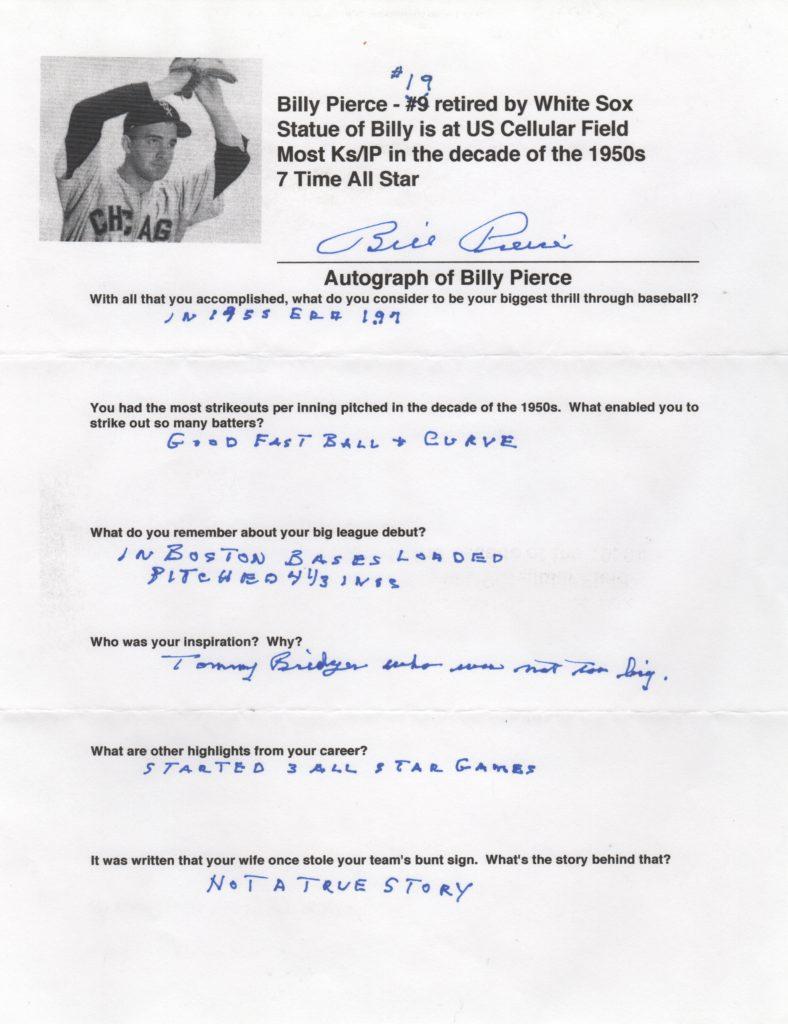 #19
Billy Pierce - #9 retired by White Sox
Statue of Billy is at US Cellular Field
Most Ks/IP in the decade of the 1950s
7 Time All Star
CHICAG
Bill Pierce
Autograph of Billy Pierce
With all that you accomplished, what do you consider to be your biggest thrill through baseball?
IN 1955 ERA 197
You had the most strikeouts per inning pitched in the decade of the 1950s. What enabled you to
strike out so many batters?
GOOD FAST BALL + CURVE
What do you remember about your big league debut?
IN BOSTON BASES LOADED
PITCHED 4 1/3 INGS
Who was your inspiration? Why?
Tommy Bridges who was not too big.
What are other highlights from your career?
STARTED 3 ALL STAR GAMES
It was written that your wife once stole your team's bunt sign. What's the story behind that?
NOT A TRUE STORY